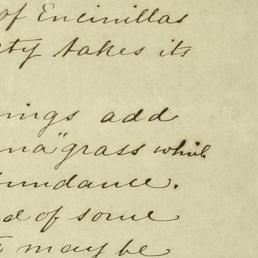 of Encinillas
ty takes its
nings add
na" grass which
bundance.
d of some
may be